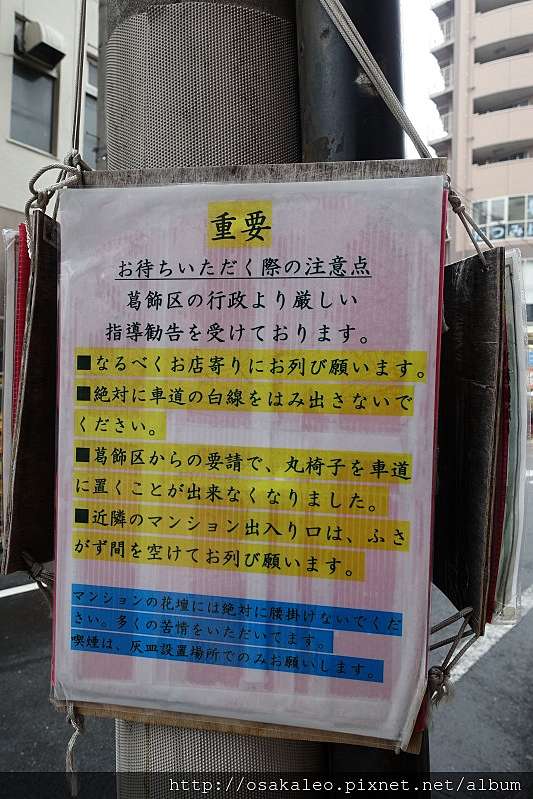 重要
お待ちいただく際の注意点
葛飾区の行政より厳しい
指導勧告を受けております。
■なるべくお店寄りにお列び願います。
■絶対に車道の白線をはみ出さないで
ください。
■葛飾区からの要請で、丸椅子を車道
に置くことが出来なくなりました。
■近隣のマンション出入り口は、ふさ
がず間を空けてお列び願います。
マンションの花壇には絶対に腰掛けないでくだ
さい。多くの苦情をいただいてます。
喫煙は、灰皿設置場所でのみお願いします。
http://osakaleo.pixnet.net/album